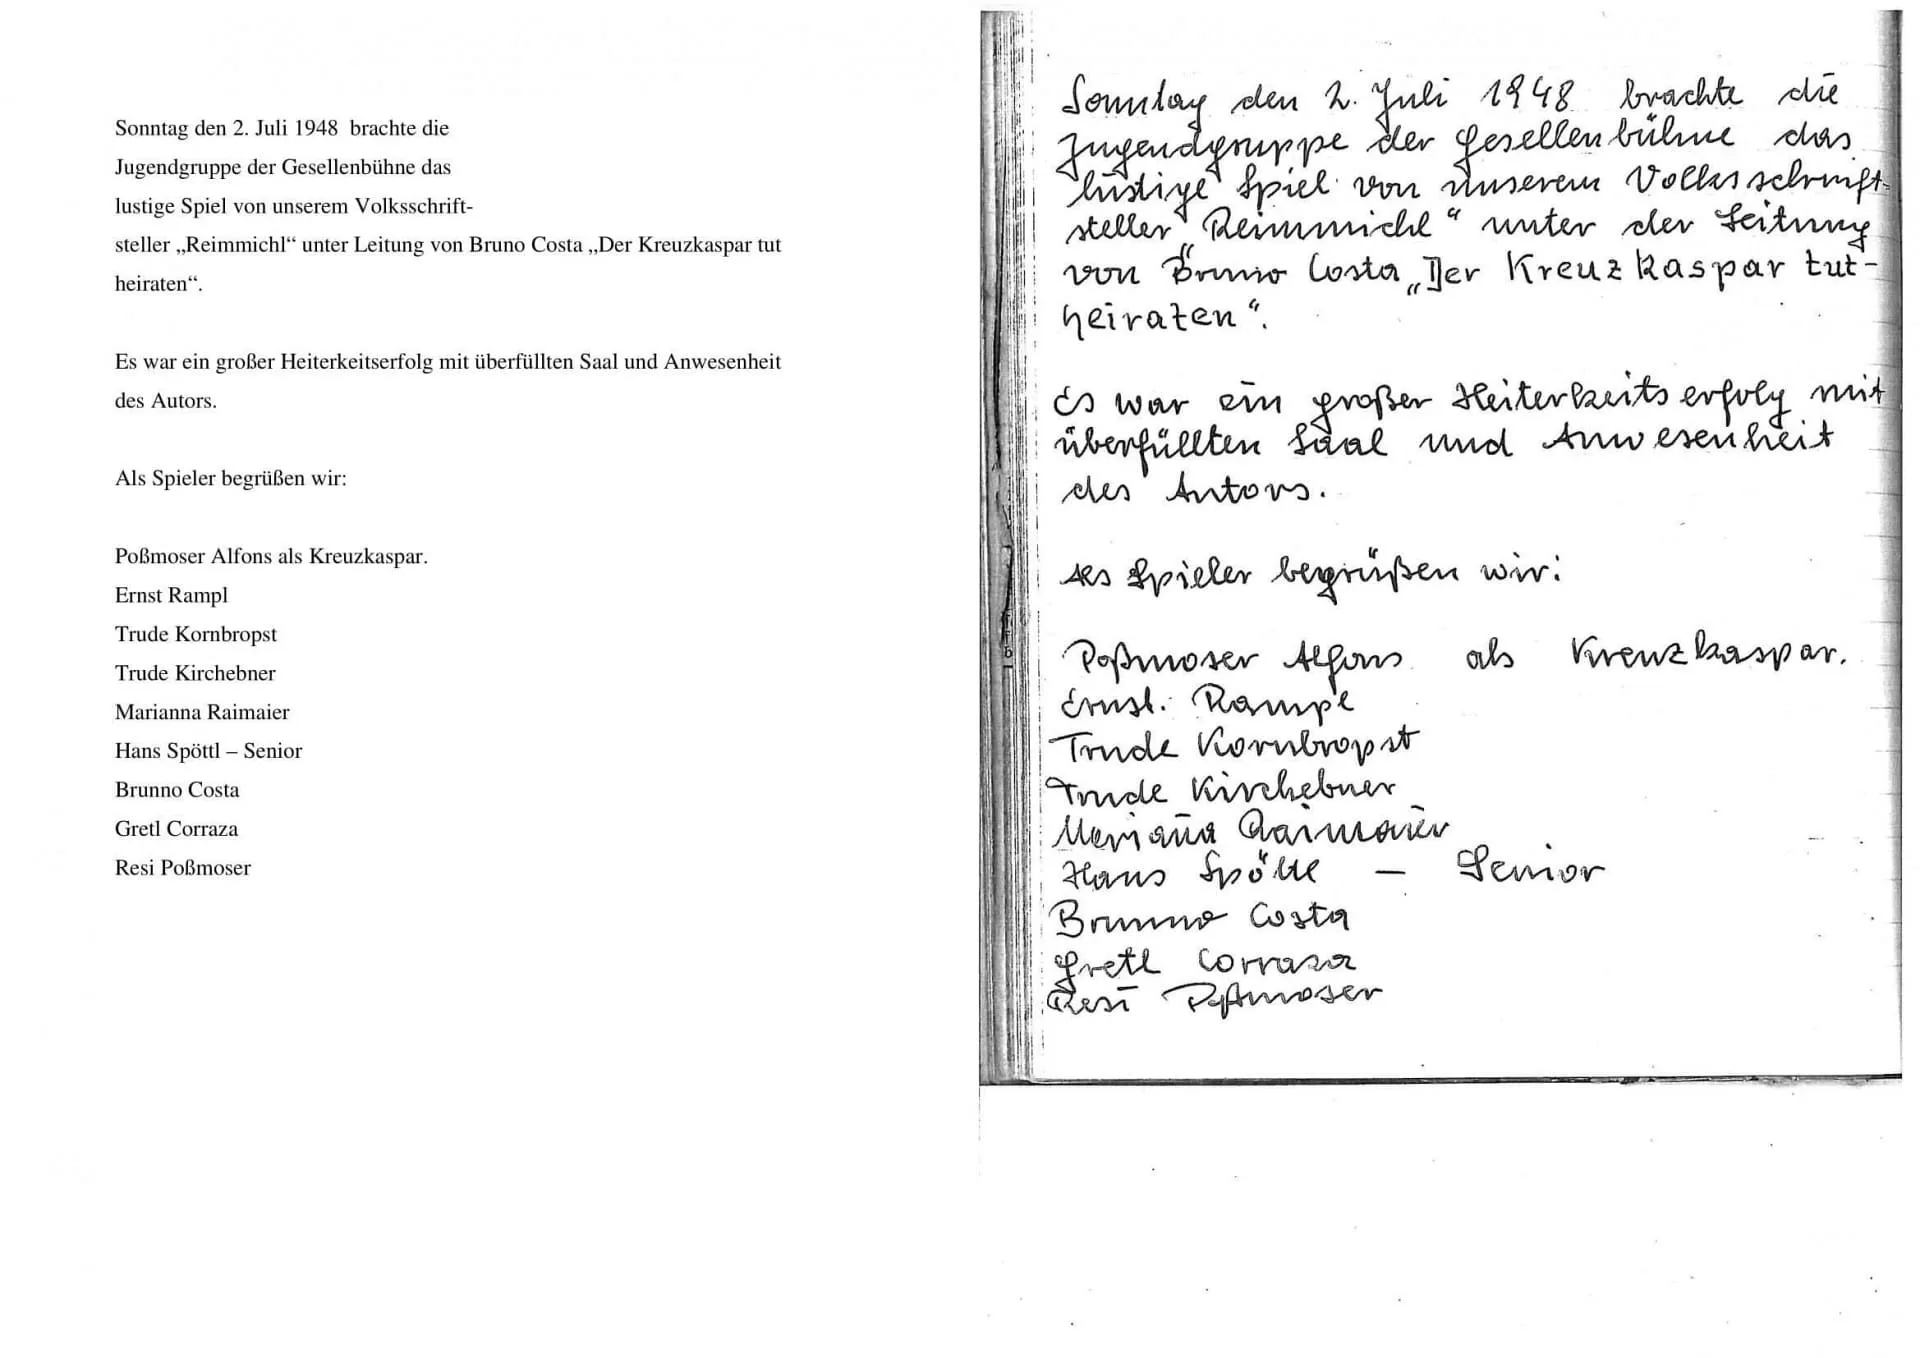 Sonntag den 2. Juli 1948  brachte die
Jugendgruppe der Gesellenbühne das
lustige Spiel von unserem Volksschrift-
steller „Reimmichl“ unter Leitung von Bruno Costa „Der Kreuzkaspar tut
heiraten“.
Es war ein großer Heiterkeitserfolg mit überfüllten Saal und Anwesenheit
des Autors.
Als Spieler begrüßen wir:
Poßmoser Alfons als Kreuzkaspar.
Ernst Rampl
Trude Kornbropst
Trude Kirchebner
Marianna Raimaier
Hans Spöttl – Senior
Brunno Costa
Gretl Corraza
Resi Poßmoser
Sonntag den 2. Juli 1948 brachte die
Jugendgruppe der Gesellenbühne das
lustige Spiel von unserem Volksschrift-
steller „Reimmichl“ unter der Leitung
von Bruno Costa „Der Kreuzkaspar tut-
heiraten“.
Es war ein großer Heiterkeitserfolg mit
überfüllten Saal und Anwesenheit
des Autors.
Als Spieler begrüßen wir:
Poßmoser Alfons als Kreuzkaspar.
Ernst. Rampl
Trude Kornbropst
Trude Kirchebner
Meriana Raimaier
Hans Spöttl — Senior
Brunno Costa
Gretl Corrasa
Resi Poßmoser